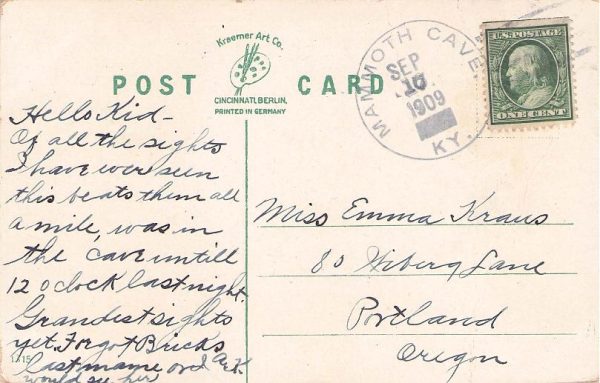 Kraemer Art Co.
POST CARD
CINCINNATI, BERLIN.
PRINTED IN GERMANY
MAMMOTH CAVE
SEP
10
1909
KY.
U.S. POSTAGE
ONE CENT
Hello Kid-
Of all the sights
I have ever seen
this beats them all
a mile, was in
the cave untill
12 oclock last night.
Grandest sights
yet. Forgot Bricks
last name or I
would see her
Miss Emma Kraus
80 Wiberg Lane
Portland
Oregon